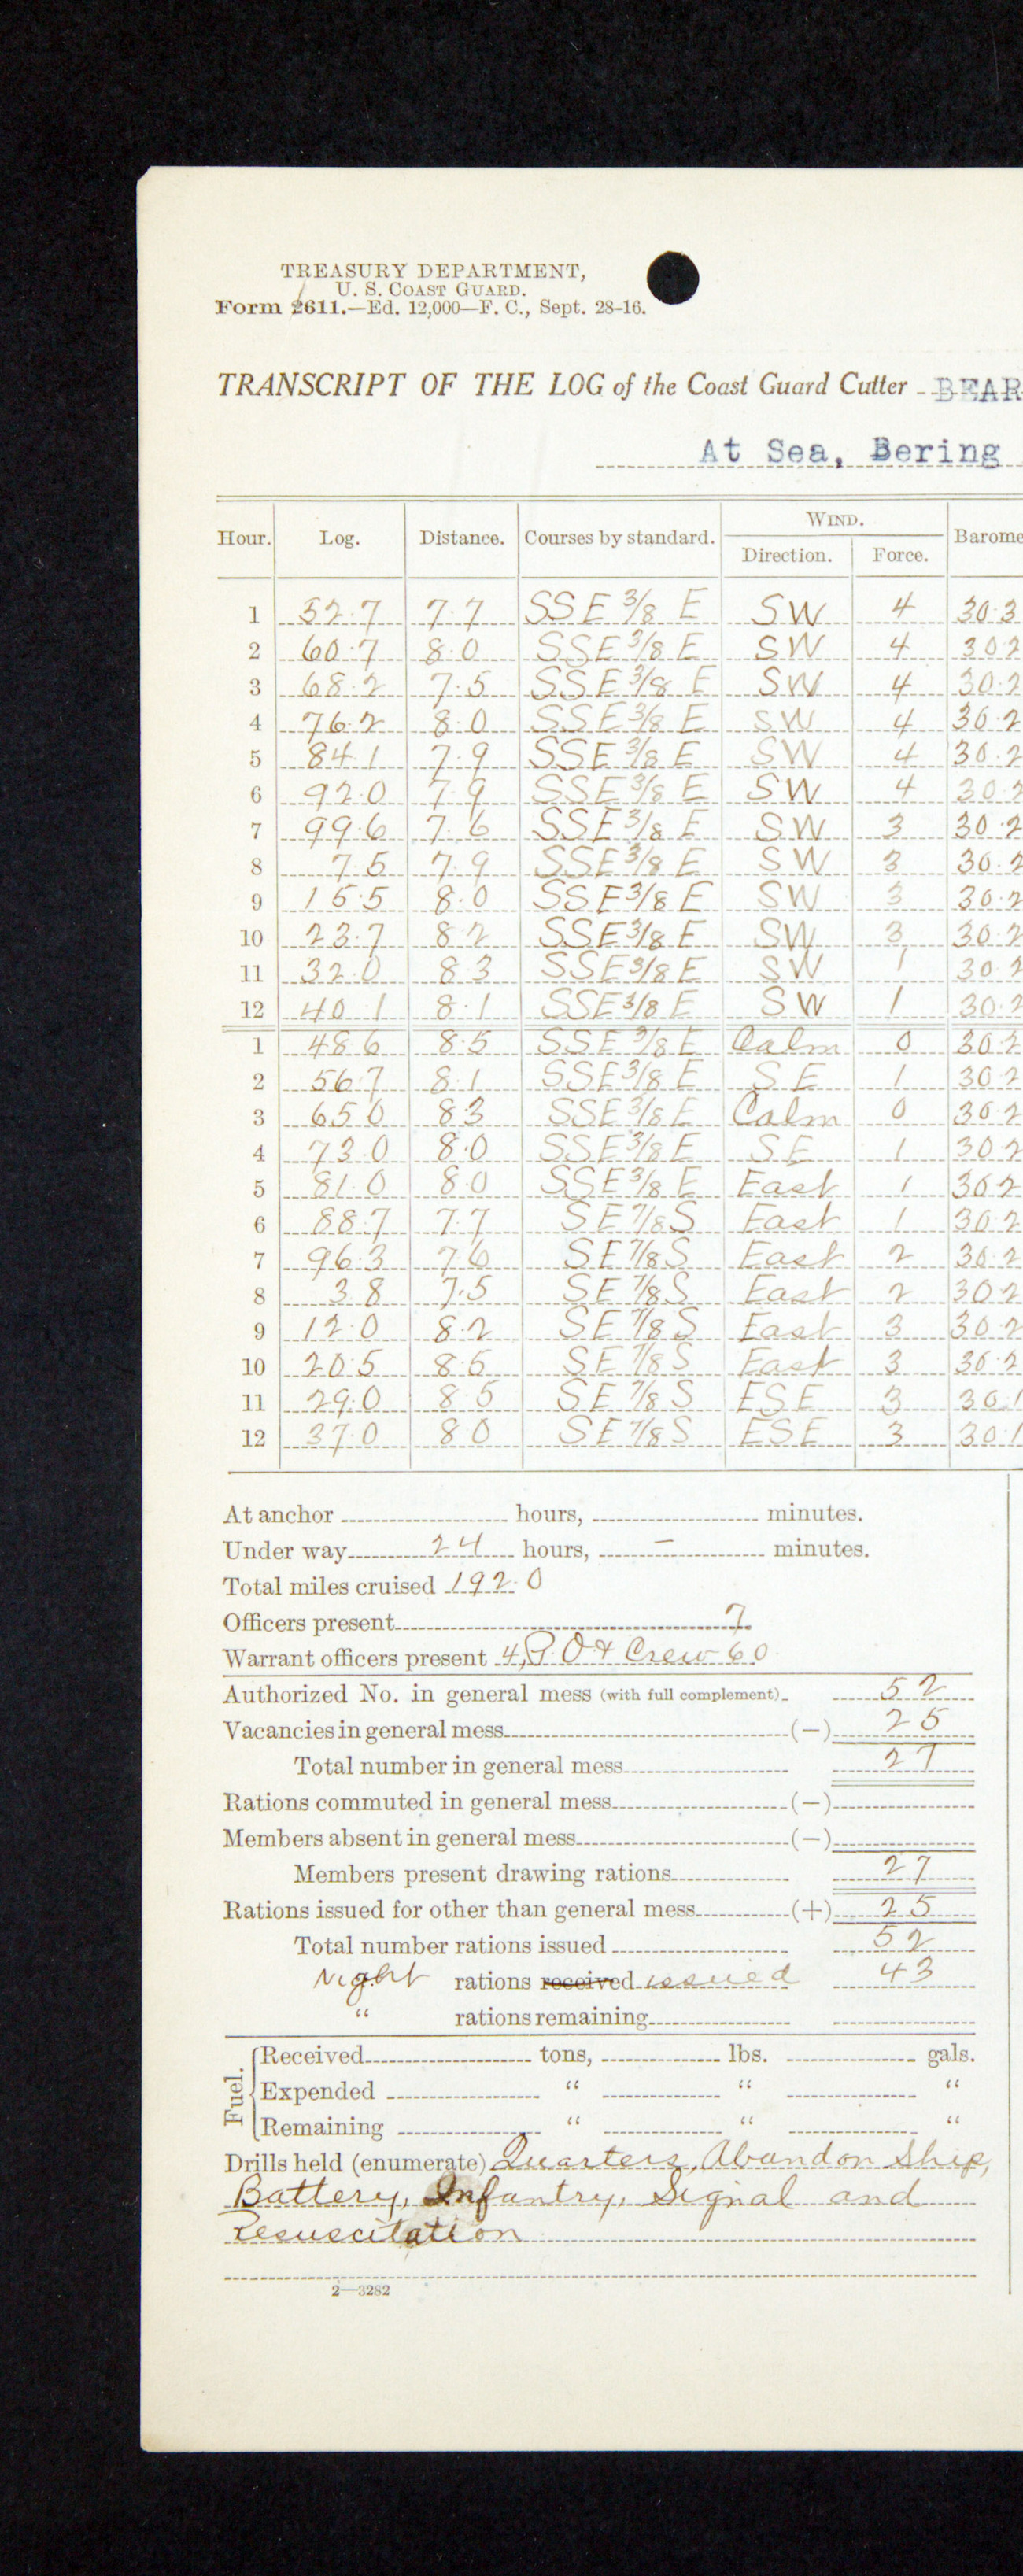 TREASURY DEPARTMENT,
U. S. COAST GUARD.
Form 2611.—Ed. 12,000—F. C., Sept. 28-16.
TRANSCRIPT OF THE LOG of the Coast Guard Cutter BEAR
At Sea, Bering
WIND.
Hour. Log. Distance. Courses by standard. Direction. Force. Barome
1 52.7 7.7 SSE 3/8 E SW 4 30.3
2 60.7 8.0 SSE 3/8 E SW 4 30.2
3 68.2 7.5 SSE 3/8 E SW 4 30.2
4 76.2 8.0 SSE 3/8 E SW 4 30.2
5 84.1 7.9 SSE 3/8 E SW 4 30.2
6 92.0 7.9 SSE 3/8 E SW 4 30.2
7 99.6 7.6 SSE 3/8 E SW 3 30.2
8 7.5 7.9 SSE 3/8 E SW 3 30.2
9 15.5 8.0 SSE 3/8 E SW 3 30.2
10 23.7 8.2 SSE 3/8 E SW 3 30.2
11 32.0 8.3 SSE 3/8 E SW 1 30.2
12 40.1 8.1 SSE 3/8 E SW 1 30.2
1 48.6 8.5 SSE 3/8 E Calm 0 30.2
2 56.7 8.1 SSE 3/8 E SE 1 30.2
3 65.0 8.3 SSE 3/8 E Calm 0 30.2
4 73.0 8.0 SSE 3/8 E SE 1 30.2
5 81.0 8.0 SSE 3/8 E East 1 30.2
6 88.7 7.7 SE 7/8 S East 1 30.2
7 96.3 7.6 SE 7/8 S East 2 30.2
8 3.8 7.5 SE 7/8 S East 2 30.2
9 12.0 8.2 SE 7/8 S East 3 30.2
10 20.5 8.5 SE 7/8 S East 3 30.2
11 29.0 8.5 SE 7/8 S ESE 3 30.1
12 37.0 8.0 SE 7/8 S ESE 3 30.1
At anchor hours, minutes.
Under way 24 hours, - minutes.
Total miles cruised 192.0
Officers present 7
Warrant officers present 4, P.O & Crew 60
Authorized No. in general mess (with full complement) 52
Vacancies in general mess (—) 25
Total number in general mess 27
Rations commuted in general mess (—)
Members absent in general mess (—)
Members present drawing rations 27
Rations issued for other than general mess (+) 25
Total number rations issued 52
Night rations received issued 43
" rations remaining
Fuel.
Received tons, lbs. gals.
Expended " " "
Remaining " " "
Drills held (enumerate) Quarters, Abandon Ship,
Battery, Infantry, Signal and
Resuscitation
2—3282